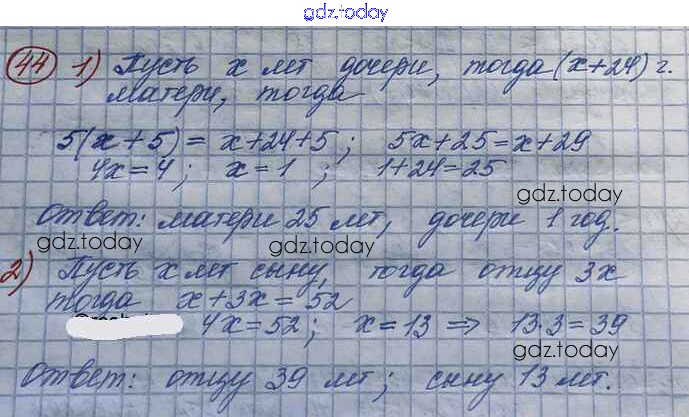 gdz.today
44 1) Пусть x лет дочери, тогда (x+24) г.
матери, тогда
5(x+5) = x+24+5; 5x+25=x+29
4x=4; x=1; 1+24=25
gdz.today
Ответ: матери 25 лет, дочери 1 год.
gdz.today gdz.today gdz.today
2) Пусть x лет сыну, тогда отцу 3x
тогда x+3x=52
4x=52; x=13 => 13·3=39
gdz.today
Ответ: отцу 39 лет; сыну 13 лет.